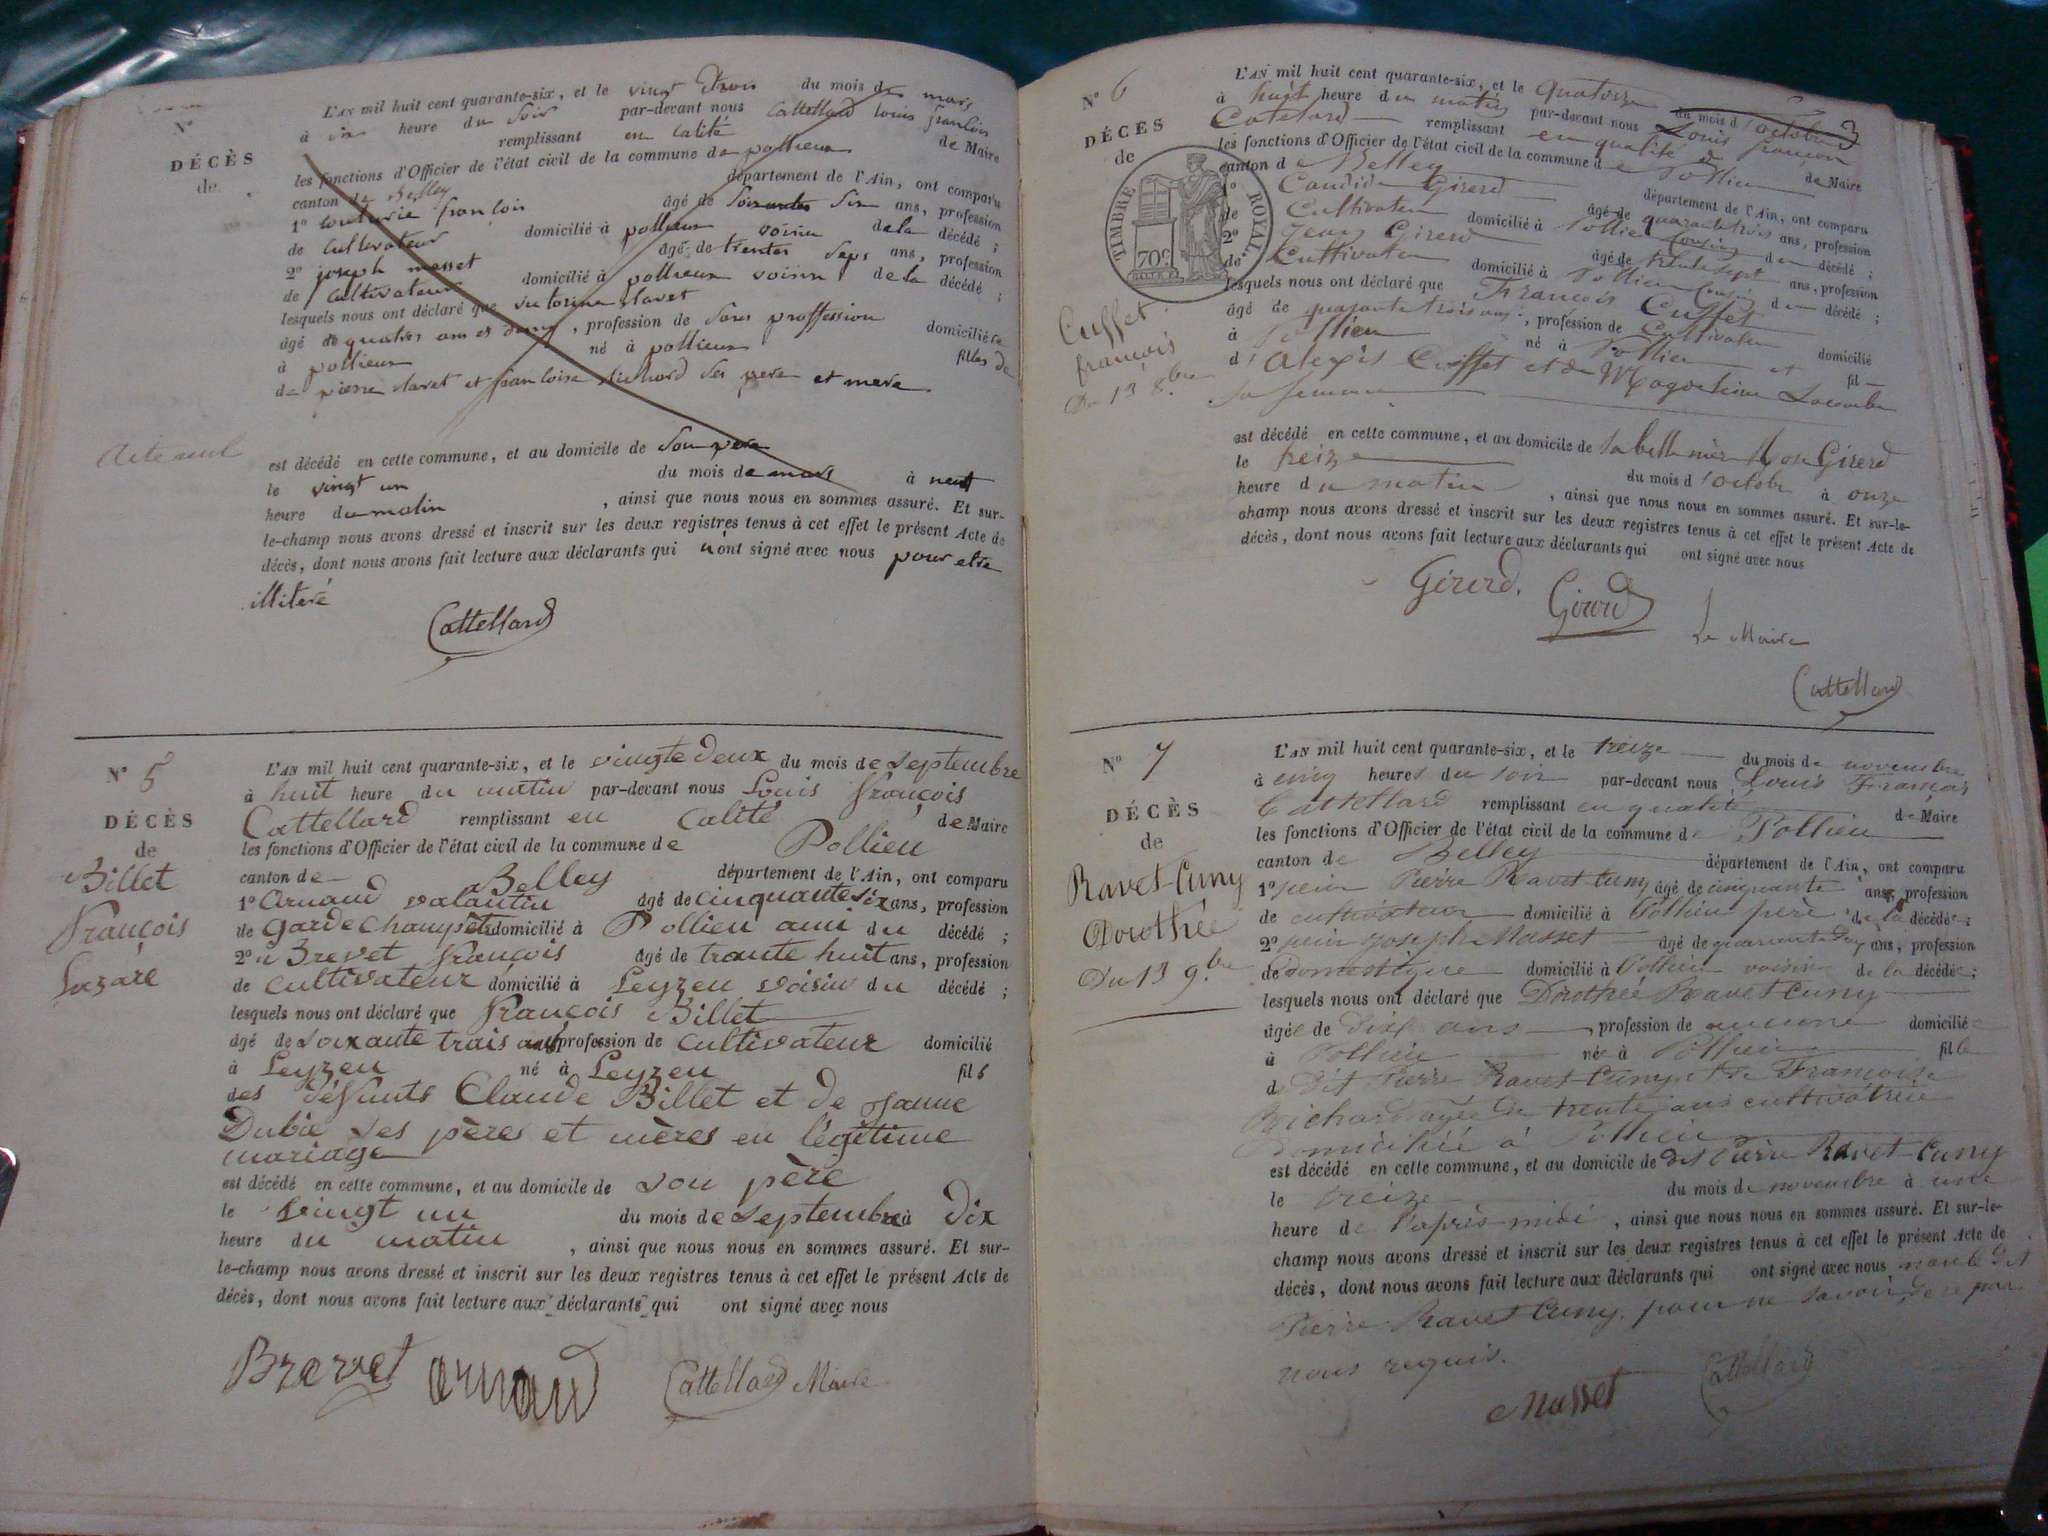 N°
DÉCÈS
de
Acte nul
L'AN mil huit cent quarante-six, et le vingt trois du mois de mars
à six heure du soir par-devant nous Cattellard louis françois
remplissant en calité de Maire
les fonctions d'Officier de l'état civil de la commune de pollieux
canton de Belley département de l'Ain, ont comparu
1° françois âgé de soixantes six ans, profession
de cultivateur domicilié à pollieux voisin de la décédé ;
2° joseph masset âgé de trentes sept ans, profession
de cultivateur domicilié à pollieux voisin de la décédé ;
lesquels nous ont déclaré que
âgé de quatres ans et demy, profession de sans proffession domiciliée
à pollieux né à pollieux filles de
de pierre et françoise ses pere et mere
est décédé en cette commune, et au domicile de son pere
le vingt un du mois de mars à neuf
heure du matin, ainsi que nous nous en sommes assuré. Et sur-
le-champ nous avons dressé et inscrit sur les deux registres tenus à cet effet le présent Acte de
décès, dont nous avons fait lecture aux déclarants qui n'ont signé avec nous pour etre
illiteré
Cattellard
N° 5
DÉCÈS
de
Billet
François
Lazare
L'AN mil huit cent quarante-six, et le vingte deux du mois de septembre
à huit heure du matin par-devant nous Louis François
Cattellard remplissant en calité de Maire
les fonctions d'Officier de l'état civil de la commune de Pollieu
canton de Belley département de l'Ain, ont comparu
1° Arnaud valantin âgé de cinquante six ans, profession
de garde champetre domicilié à Pollieu ami du décédé ;
2° Brevet François âgé de trante huit ans, profession
de cultivateur domicilié à Leyzeu voisin du décédé ;
lesquels nous ont déclaré que François Billet
âgé de soixante trais ans profession de cultivateur domicilié
à Leyzeu né à Leyzeu fils
des défunts Claude Billet et de Janne
Dubie ses pères et mères en légitime
mariage
est décédé en cette commune, et au domicile de son père
le vingt un du mois de septembre à dix
heure du matin, ainsi que nous nous en sommes assuré. Et sur-
le-champ nous avons dressé et inscrit sur les deux registres tenus à cet effet le présent Acte de
décès, dont nous avons fait lecture aux déclarants qui ont signé avec nous
Brevet Arnaud Cattellard Maire
3
N° 6
DÉCÈS
de
TIMBRE ROYAL
70c
Cuffet
françois
Du 13 8.bre
L'AN mil huit cent quarante-six, et le quatorze du mois d'octobre
à huit heure du matin par-devant nous Louis françois
Catelard remplissant en qualité de Maire
les fonctions d'Officier de l'état civil de la commune de Pollieu
canton de Belley département de l'Ain, ont comparu
1° Candide Girerd âgé de quarante trois ans, profession
de Cultivateur domicilié à Pollieu Cousin du décédé ;
2° Jean Girerd âgé de trente sept ans, profession
de Cultivateur domicilié à Pollieu Cousin du décédé ;
lesquels nous ont déclaré que François Cuffet
âgé de quarante trois ans, profession de Cultivateur domicilié
à Pollieu né à Pollieu et fil
d'Alexis Cuffet et de Magdeleine Lacombe
sa femme
est décédé en cette commune, et au domicile de sa belle mère Girerd
le treize du mois d'octobre à onze
heure du matin, ainsi que nous nous en sommes assuré. Et sur-le-
champ nous avons dressé et inscrit sur les deux registres tenus à cet effet le présent Acte de
décès, dont nous avons fait lecture aux déclarants qui ont signé avec nous
Girerd. Girerd Le Maire
Cattellard
N° 7
DÉCÈS
de
Ravet-Cuny
Dorothée
Du 13 9.bre
L'AN mil huit cent quarante-six, et le treize du mois de novembre
à cinq heures du soir par-devant nous Louis François
Cattellard remplissant en qualité de Maire
les fonctions d'Officier de l'état civil de la commune de Pollieu
canton de Belley département de l'Ain, ont comparu
1° Pierre Ravet-Cuny âgé de cinquante ans, profession
de cultivateur domicilié à Pollieu père de la décédée ;
2° Joseph Masset âgé de quarante ans, profession
de Domestique domicilié à Pollieu voisin de la décédée ;
lesquels nous ont déclaré que Dorothée Ravet Cuny
âgée de dix ans, profession de aucune domicilié
à Pollieu née à Pollieu fille
de Dit Pierre Ravet-Cuny et de Françoise
Richard agée de trente ans cultivatrice
domiciliée à Pollieu
est décédé en cette commune, et au domicile de dit Pierre Ravet-Cuny
le treize du mois de novembre à une
heure de l'après-midi, ainsi que nous nous en sommes assuré. Et sur-le-
champ nous avons dressé et inscrit sur les deux registres tenus à cet effet le présent Acte de
décès, dont nous avons fait lecture aux déclarants qui ont signé avec nous non le dit
Pierre Ravet Cuny pour ne savoir, de ce par
nous requis.
Masset Cattellard